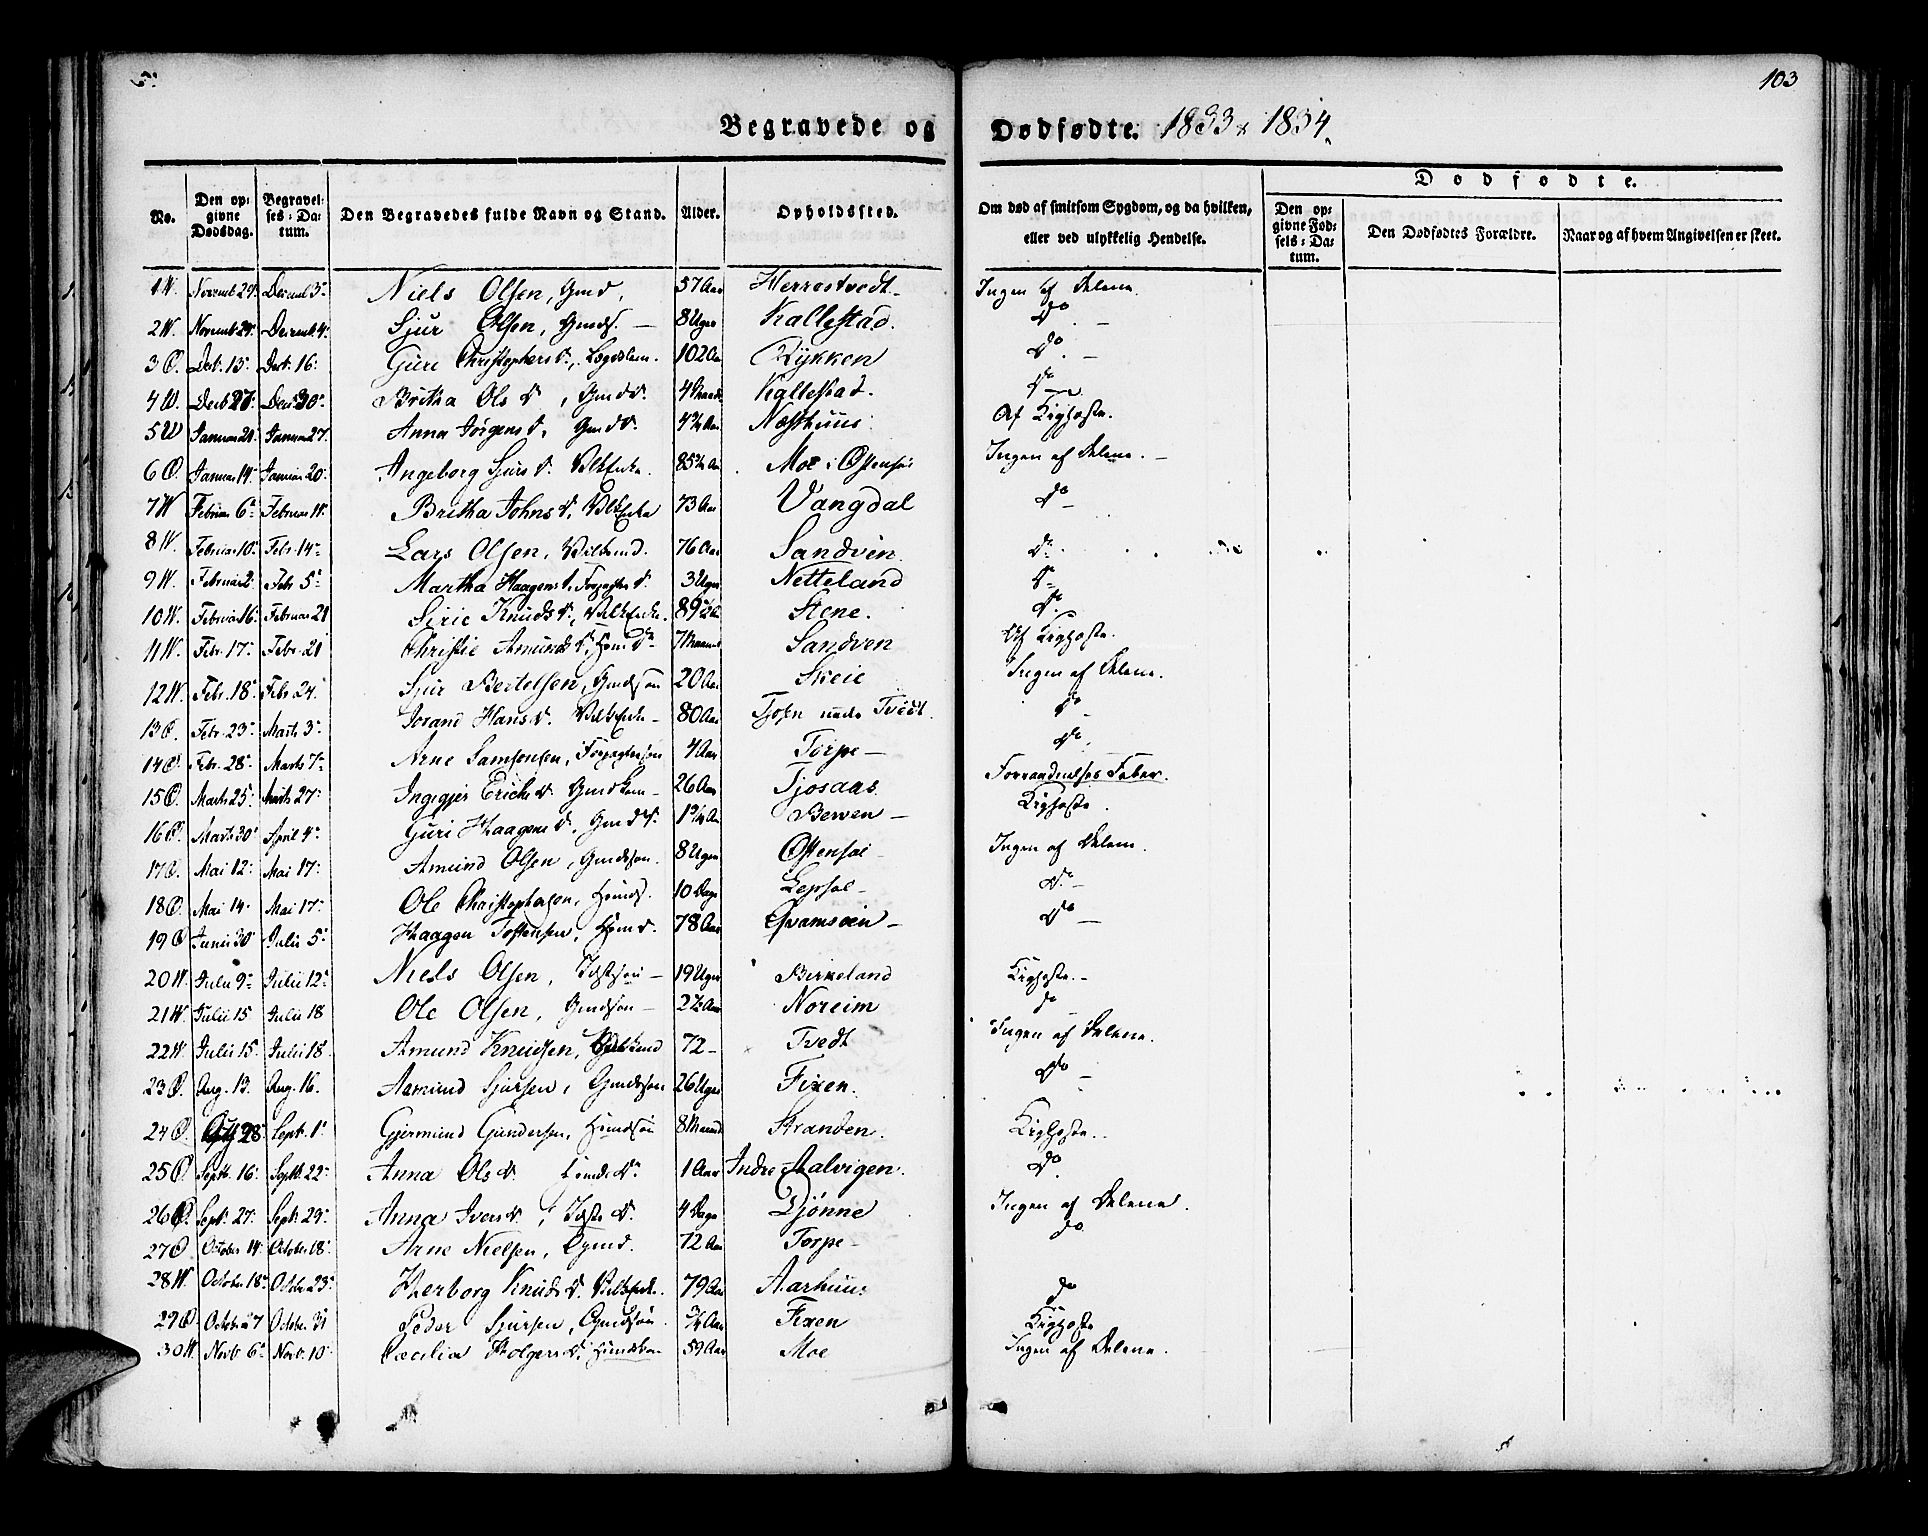 103
Begravede og Dødfødte. 1833 & 1834.
No. Den opgivne Dødsdag. Begravelses-Datum. Den Begravedes fulde Navn og Stand. Alder. Opholdssted. Om død af smitsom Sygdom, og da hvilken, eller ved ulykkelig Hendelse. Dødfødte.
Den opgivne Fødsels-Datum. Den Dødfødtes Forældre. Naar og af hvem Angivelsen er skeet.
1 W. Novemb. 29. Decemb 3. Niels Olsen, Gmd. 57 Aar Herrestvedt Ingen af Delene.
2 W. Novemb. 29. Decemb. 4. Sjur Olsen, Gmds. 8 Uger Kallestad. Do
3 Ø. Decb. 13. Decb. 16. Guri Christophersd., Lægdslem. 102 Aar Rykken Do
4 W. Decb 27. Decb 30. Britha Olsd., Gmdd. 4 Maand. Kallestad. Do
5 W Januar 21. Januar 27. Anna Jørgensd. Gmdd. 4 Aar Næsthuus Af Kighoste.
6 Ø. Januar 14. Januar 20. Angeborg Sjursd. Vilk Enke. 85 Aar Moe i Østensøe Ingen af Delene.
7 W Februar 6. Februar 11. Britha Johnsd. Vilk Enke 73 Aar Vangdal Do
8 W. Februar 10. Febr. 14. Lars Olsen, Vilkmd. 76 Aar Sandven Do
9 W. Februar 2. Febr 5. Martha Haagensd. Forpagterd. 3 Uger Netteland Do
10 W. Februar 16. Februar 21 Sirie Knudsd., Vilk Enke. 89 Aar Stene. Do
11 W. Febr. 17. Febr. 21 Christie Amundsd. Hmdd. 7 Maaned Sandven Af Kighoste.
12 W. Febr. 18. Febr. 24. Sjur Bertelsen, Gmdsøn 20 Aar Skeie Ingen af Delene.
13 Ø. Febr. 23. Marts 3. Jorand Hansd. Vilk Enke 80 Aar Tjosn Tvedt. Do
14 Ø Febr. 28. Marts 7. Arne Samsonsen, Forpagtersøn 4 Aar Torpe Do
15 Ø. Marts 25. Marts 27. Ingigjer Ericksd. Gmdkone 26 Aar Tjosaas Forraadnelses Feber.
16 Ø. Marts 30. April 4. Guri Haagensd. Gmdd. 1 Aar Berven Kighoste.
17 Ø. Mai 12. Mai 17. Amund Olsen, Gmdsøn. 8 Uger Østensøe Ingen af Delene.
18 Ø. Mai 14. Mai 17. Ole Christophersen, Hmds. 10 Dage Lepsøe Do
19 Ø Junii 30 Julii 5. Haagen Tostensen, Hmd. 78 Aar Qvamsøen Do
20 W. Julii 9. Julii 12. Niels Olsen, Idstsøn 19 Uger Birkeland Kighoste.
21 W. Julii 15 Julii 18 Ole Olsen, Gmdsøn 2½ Aar Noreim do
22 W. Julii 15. Julii 18. Amund Knudsen, Vilkmd 72 Tvedt Ingen af Delene.
23 Ø. Aug. 13. Aug. 16. Aamund Sjursen, Gmdsøn 26 Uger Fixen. Do
24 Ø. Aug 28. Sept. 1. Gjermund Gundersen, Hmdsøn 8 Maaned Stranden. Kighoste.
25 Ø. Septb. 16. Septb. 22. Anna Olsd. 1 Aar Indre Aalvigen. Do
26 Ø. Septb. 27. Septb 29. Anna Iversd., Idstd. 4 Dage Djønne Ingen af Delene.
27 Ø. October 14. October 18. Arne Nielsen, Gmd. 72 Aar Torpe do
28 W. October 18. October 23. Herborg Knudsd. Vilk Enke. 79 Aar Aarhuus do
29 Ø. October 27 October 31 Peder Sjursen, Gmdsøn. ¾ Aar Fixen Kighoste
30 W. Novb. 6. Novb. 10. Cæcilia Holgersd. Hmdskone 59 Aar Moe Ingen af Delene.